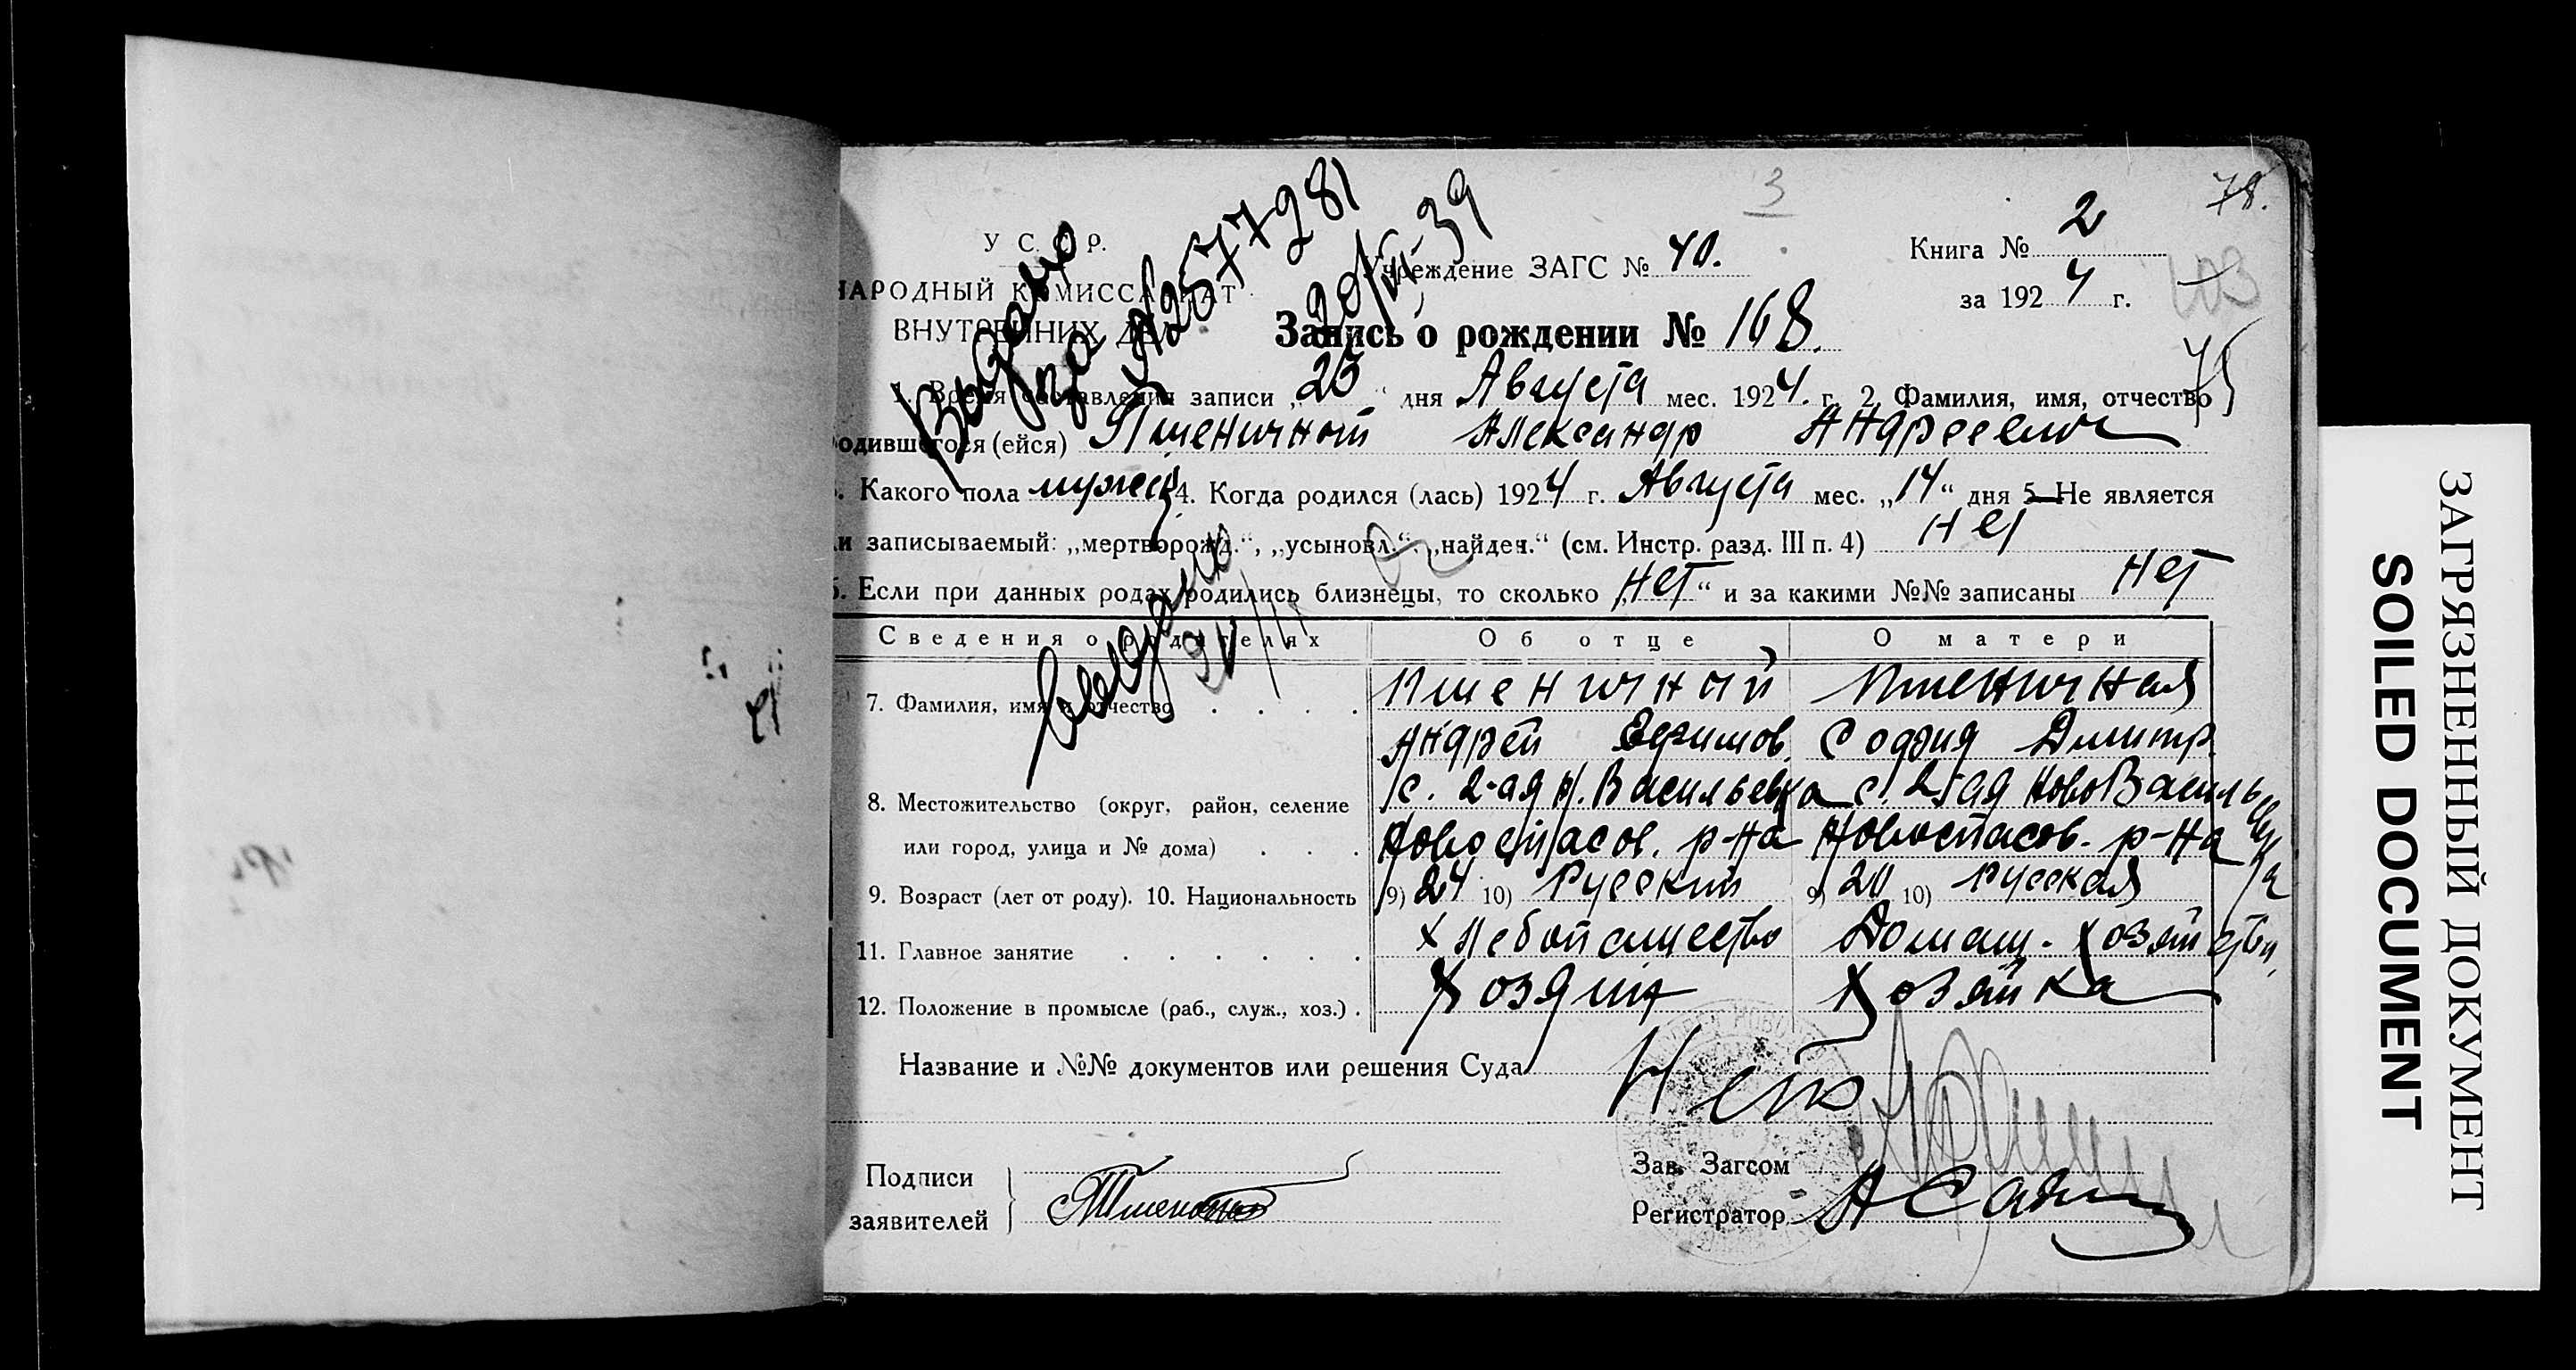 3
78.
У. С. С. Р.
НАРОДНЫЙ КОМИССАРИАТ
ВНУТРЕННИХ ДЕЛ
Учреждение ЗАГС № 40.
Книга № 2
за 1924 г.
103
75
Выдано
2577281
39
Запись о рождении № 168.
1. Время составления записи „25“ дня Августа мес. 1924. г. 2. Фамилия, имя, отчество
родившегося (ейся) Пшеничный Александр Андреевич
3. Какого пола мужск 4. Когда родился (лась) 1924 г. Августа мес. „14“ дня 5. Не является
ли записываемый: „мертворожд.“, „усыновл.“, „найден.“ (см. Инстр. разд. III п. 4) Нет
6. Если при данных родах родились близнецы, то сколько „Нет“ и за какими №№ записаны Нет
Выдано
Сведения о родителях Об отце О матери
7. Фамилия, имя и отчество . . . . Пшеничный Пшеничная
Андрей Ефимов. София Димитр.
8. Местожительство (округ, район, селение с. 2-ая Н. Васильевка с. 2-ая НовоВасильевка
или город, улица и № дома) . . . Новоспасов. р-на Новоспасов. р-на
9. Возраст (лет от роду). 10. Национальность 9) 24 10) Русский 9) 20 10) Русская
11. Главное занятие . . . . . . Хлебопашество Домаш. хозяйство
12. Положение в промысле (раб., служ., хоз.) . Хозяин Хозяйка
Название и №№ документов или решения Суда Нет
Подписи
заявителей
Зав. Загсом
Регистратор
ЗАГРЯЗНЕННЫЙ ДОКУМЕНТ
SOILED DOCUMENT